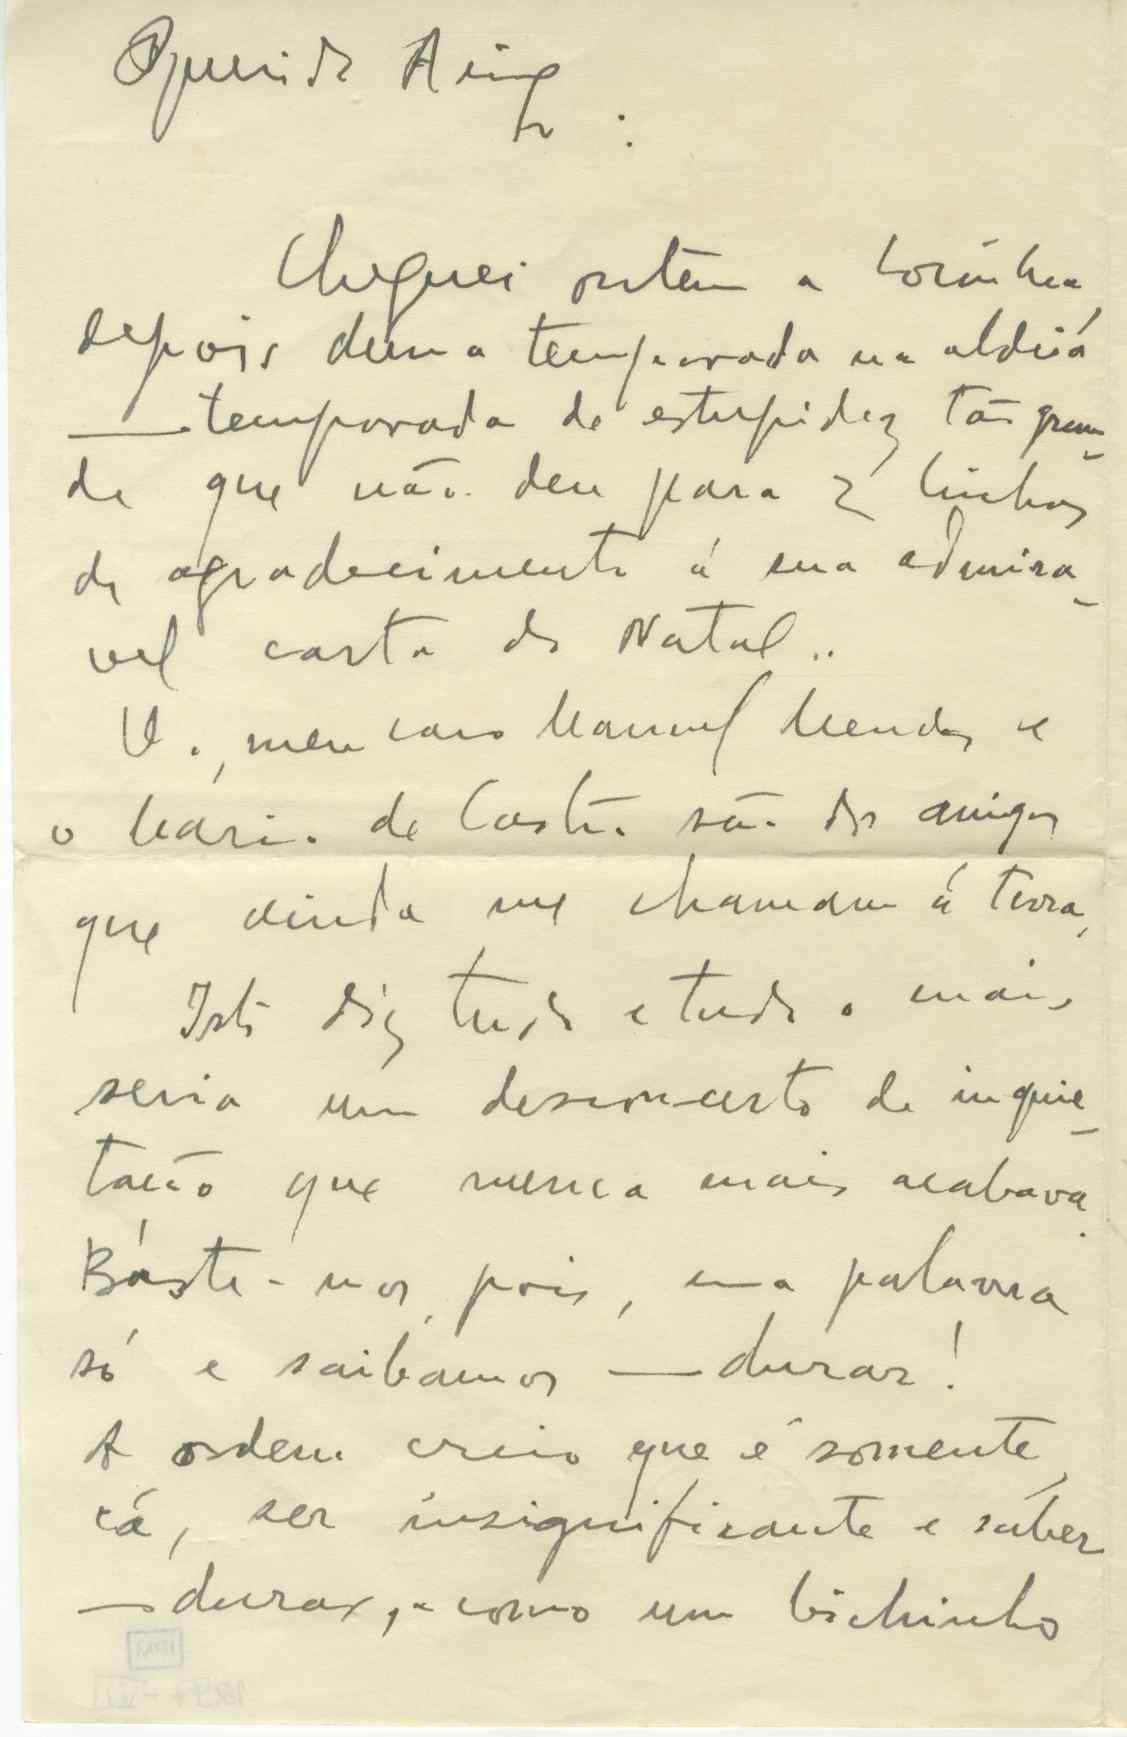 Querido Amigo:
Cheguei ontem a Coimbra,
depois duma temporada na aldeia
— temporada de estupidez tão gran-
de que não deu para 2 linhas
de agradecimento á sua admira-
vel carta do Natal..
V., meu caro Manuel Mendes e
o Mario de Castro são dos amigos
que ainda me chamam á terra,
Isto diz tudo e tudo o mais
seria um desconcerto de inquie-
tação que nunca mais acabava.
Báste-nos, pois, uma palavra
só e saibamos — durar!
A ordem creio que é somente,
cá, ser insignificante e saber
— durar, — como um bichinho